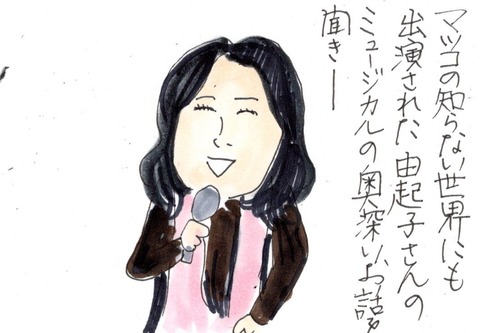 マツコの知らない世界にも
出演された由起子さんの
ミュージカルの奥深いお話を
聞きー